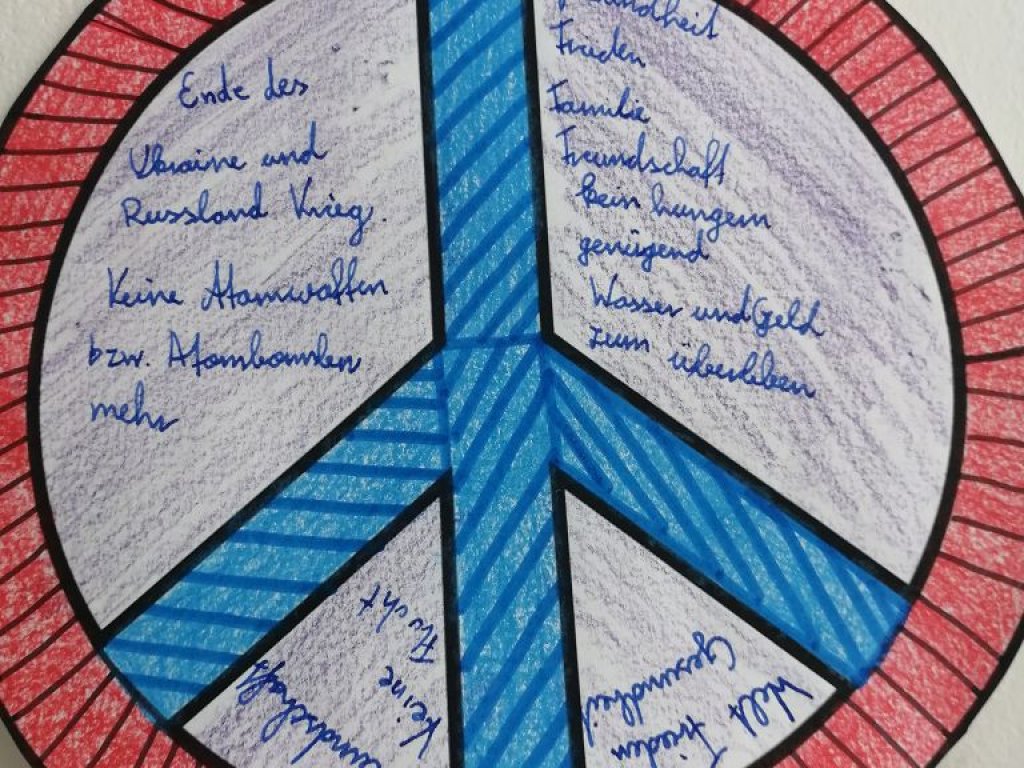 Ende des
Ukraine und
Russland Krieg.
Keine Atomwaffen
bzw. Atombomben
mehr
Gesundheit
Frieden
Familie
Freundschaft
kein hungern
genügend
Wasser und Geld
zum überleben
keine Flucht
Freundschaft
Welt Frieden
Gesundheit